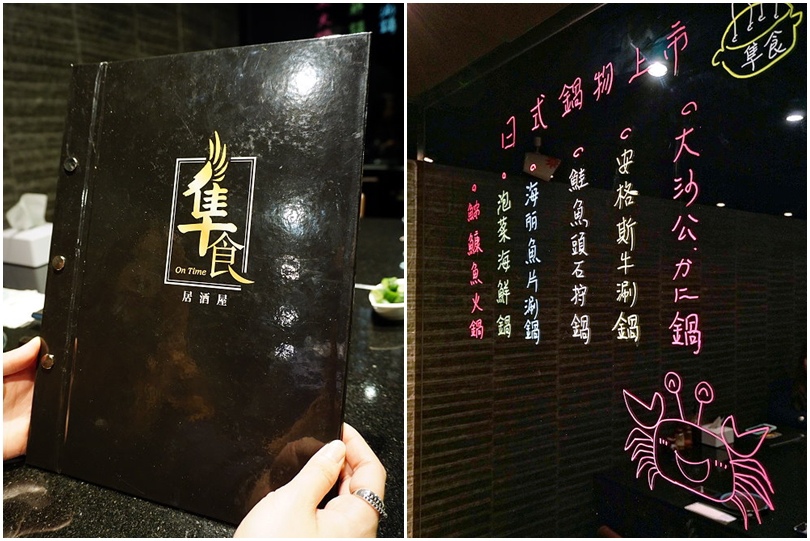 隼食
On Time
居酒屋
隼食
日式鍋物上市
大沙公.カニ鍋
安格斯牛涮鍋
鮭魚頭石狩鍋
海丽魚片涮鍋
泡菜海鮮鍋
魚火鍋